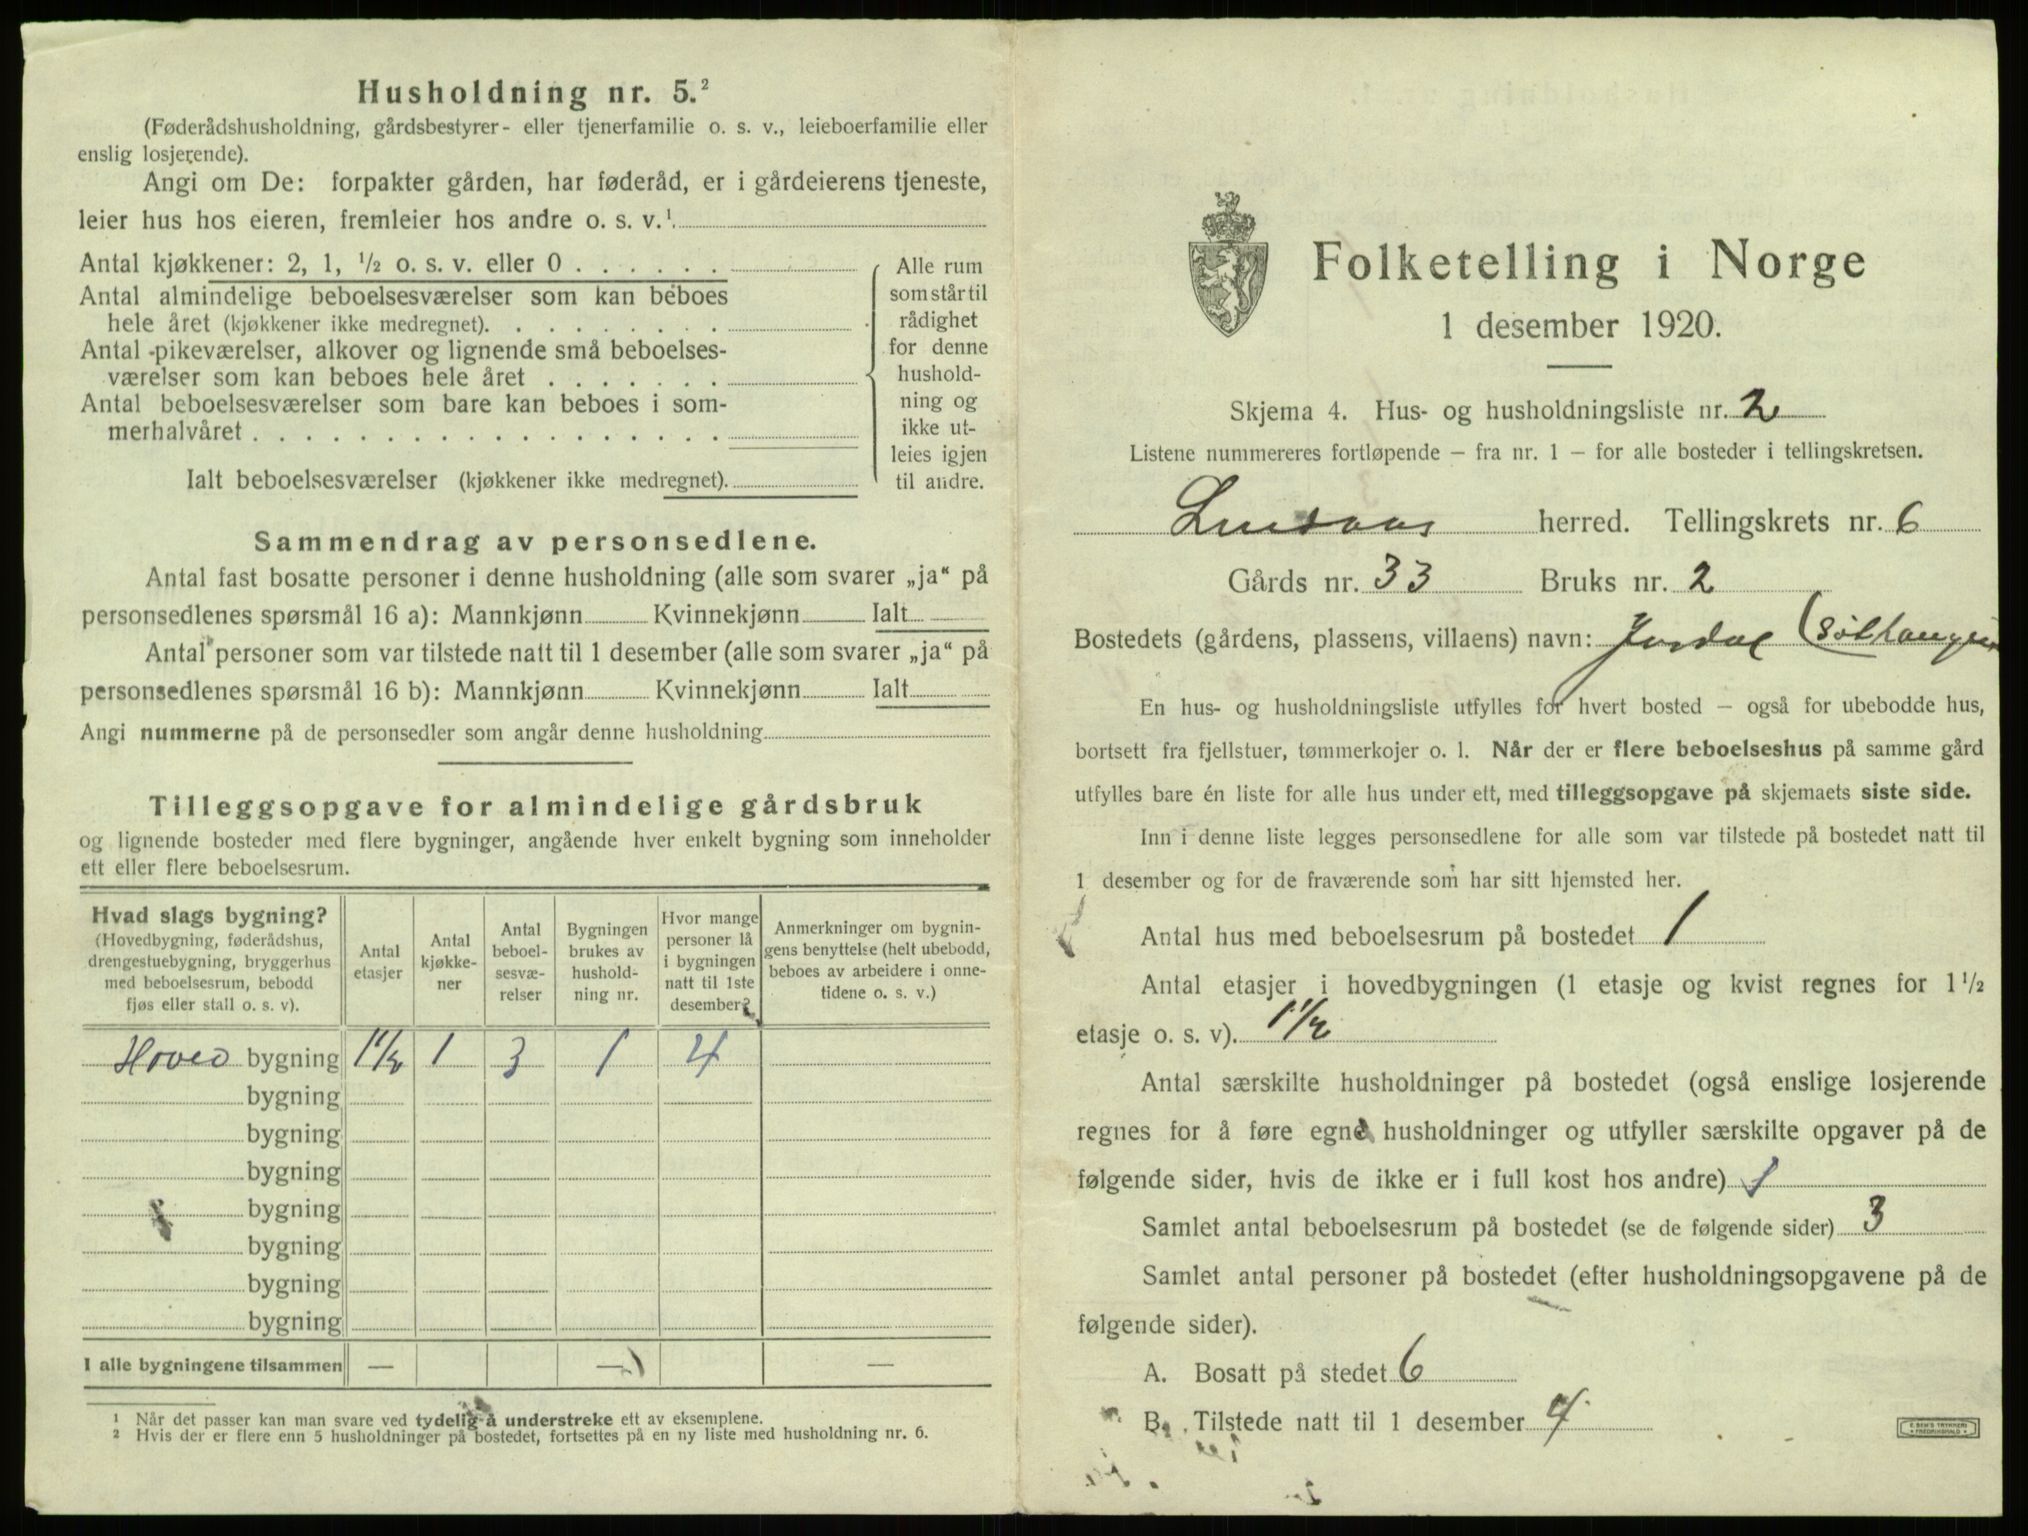 Husholdning nr. 5.²
(Føderådshusholdning, gårdsbestyrer- eller tjenerfamilie o. s. v., leieboerfamilie eller
enslig losjerende).
Angi om De: forpakter gården, har føderåd, er i gårdeierens tjeneste,
leier hus hos eieren, fremleier hos andre o. s. v.¹.
Antal kjøkkener: 2, 1, ½ o. s. v. eller 0 . . . . . .
Antal almindelige beboelsesværelser som kan beboes
hele året (kjøkkener ikke medregnet). . . . . . . . .
Antal pikeværelser, alkover og lignende små beboelses-
værelser som kan beboes hele året . . . . . . .
Antal beboelsesværelser som bare kan beboes i som-
merhalvåret . . . . . . . . . . . . . . . . .
Ialt beboelsesværelser (kjøkkener ikke medregnet).
Alle rum
som står til
rådighet
for denne
hushold-
ning og
ikke ut-
leies igjen
til andre.
Sammendrag av personsedlene.
Antal fast bosatte personer i denne husholdning (alle som svarer „ja“ på
personsedlenes spørsmål 16 a): Mannkjønn Kvinnekjønn Ialt
Antal personer som var tilstede natt til 1 desember (alle som svarer „ja“ på
personsedlenes spørsmål 16 b): Mannkjønn Kvinnekjønn Ialt
Angi nummerne på de personsedler som angår denne husholdning
Tilleggsopgave for almindelige gårdsbruk
og lignende bosteder med flere bygninger, angående hver enkelt bygning som inneholder
ett eller flere beboelsesrum.
Hvad slags bygning?
(Hovedbygning, føderådshus,
drengestuebygning, bryggerhus
med beboelsesrum, bebodd
fjøs eller stall o. s. v).
Antal
etasjer
Antal
kjøkke-
ner
Antal
beboel-
sesvæ-
relser
Bygningen
brukes av
hushold-
ning nr.
Hvor mange
personer lå
i bygningen
natt til 1ste
desember?
Anmerkninger om bygnin-
gens benyttelse (helt ubebodd,
beboes av arbeidere i onne-
tidene o. s. v.)
Hoved bygning 1½ 1 3 1 4
bygning
bygning
bygning
bygning
bygning
bygning
bygning
I alle bygningene tilsammen — — —
¹ Når det passer kan man svare ved tydelig å understreke ett av eksemplene.
² Hvis der er flere enn 5 husholdninger på bostedet, fortsettes på en ny liste med husholdning nr. 6.
Folketelling i Norge
1 desember 1920.
Skjema 4. Hus- og husholdningsliste nr. 2
Listene nummereres fortløpende – fra nr. 1 – for alle bosteder i tellingskretsen.
Lindaas herred. Tellingskrets nr. 6
Gårds nr. 33 Bruks nr. 2
Bostedets (gårdens, plassens, villaens) navn: Jordal
En hus- og husholdningsliste utfylles for hvert bosted – også for ubebodde hus,
bortsett fra fjellstuer, tømmerkojer o. l. Når der er flere beboelseshus på samme gård
utfylles bare én liste for alle hus under ett, med tilleggsopgave på skjemaets siste side.
Inn i denne liste legges personsedlene for alle som var tilstede på bostedet natt til
1 desember og for de fraværende som har sitt hjemsted her.
Antal hus med beboelsesrum på bostedet 1
Antal etasjer i hovedbygningen (1 etasje og kvist regnes for 1½
etasje o. s. v). 1½
Antal særskilte husholdninger på bostedet (også enslige losjerende
regnes for å føre egne husholdninger og utfyller særskilte opgaver på de
følgende sider, hvis de ikke er i full kost hos andre) 1
Samlet antal beboelsesrum på bostedet (se de følgende sider) 3
Samlet antal personer på bostedet (efter husholdningsopgavene på de
følgende sider).
A. Bosatt på stedet 6
B. Tilstede natt til 1 desember 4
E. SEM'S TRYKKERI
FREDRIKSHALD